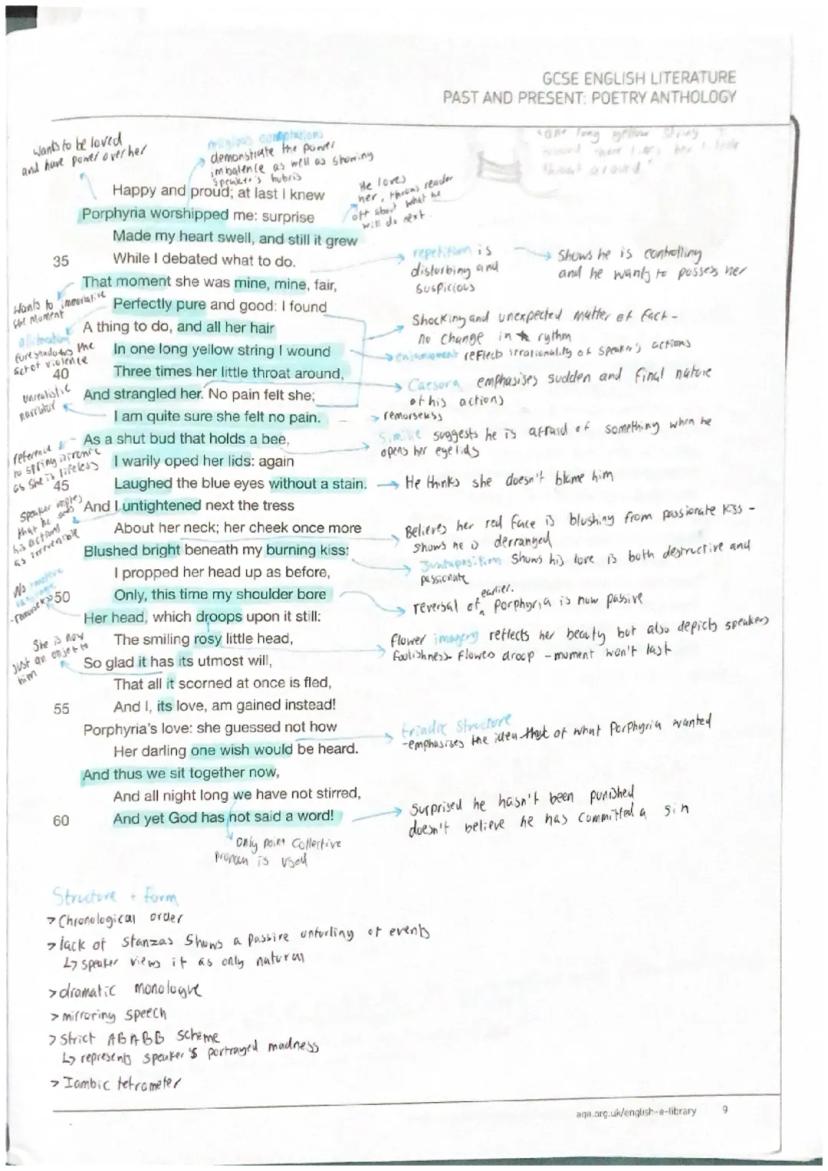 GCSE ENGLISH LITERATURE
PAST AND PRESENT: POETRY ANTHOLOGY
wants to be loved
and have power over her
religious connotations
demonstrate the power
imbalance as well as showing
speaker's hubris
He loves
her, throws reader
off about what he
will do next.
Happy and proud; at last I knew
Porphyria worshipped me: surprise
Made my heart swell, and still it grew
35 While I debated what to do.
repetition is
disturbing and
suspicious
shows he is controlling
and he wants to possess her
That moment she was mine, mine, fair,
Perfectly pure and good: I found
A thing to do, and all her hair
In one long yellow string I wound
40 Three times her little throat around,
And strangled her. No pain felt she;
I am quite sure she felt no pain.
As a shut bud that holds a bee,
I warily oped her lids: again
45 Laughed the blue eyes without a stain.
And I untightened next the tress
About her neck; her cheek once more
Blushed bright beneath my burning kiss:
I propped her head up as before,
50 Only, this time my shoulder bore
Her head, which droops upon it still:
The smiling rosy little head,
So glad it has its utmost will,
That all it scorned at once is fled,
55 And I, its love, am gained instead!
Porphyria's love: she guessed not how
Her darling one wish would be heard.
And thus we sit together now,
And all night long we have not stirred,
60 And yet God has not said a word!
wants to immortalise
the moment
alliteration
foreshadows the
act of violence
unrealistic
narrator
referred
to spring
as she is lifeless
speaker
that he
his actions
as
No
She is now
just an object to
him
Shocking and unexpected matter of fact -
no change in rythm
enjambment reflects irrationality of speaker's actions
Caesura emphasises sudden and final nature
of his actions
remorseless
Simile suggests he is afraid of something when he
opens her eyelids
He thinks she doesn't blame him
Believes her red face is blushing from passionate kiss -
shows he is derranged
Juxtaposition shows his love is both destructive and
passionate
earlier.
reversal of, Porphyria is now passive
flower imagery reflects her beauty but also depicts speakers
foolishness flowers droop - moment won't last
triadic structure
-emphasises the idea that of what Porphyria wanted
Surprised he hasn't been punished
doesn't believe he has committed a sin
only point collective
pronoun is used
Structure + form
> Chronological order
> lack of stanzas shows a passive unfurling of events
↳ speaker views it as only natural
> dramatic monologue
> mirroring speech
> strict ABABB scheme
↳ represents speaker's portrayed madness
> Iambic tetrameter
aqa.org.uk/english-e-library 9